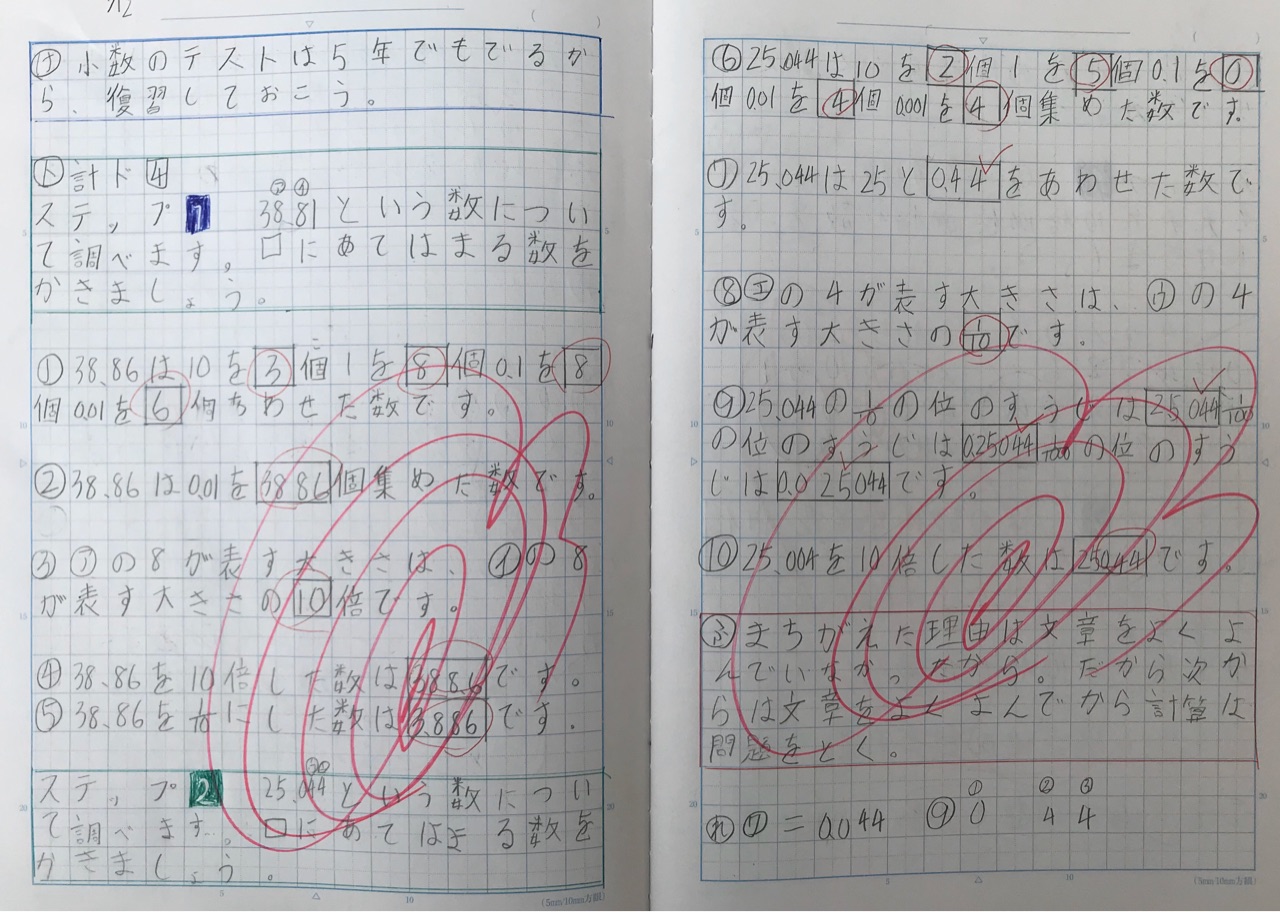 け 小数のテストは5年でもでるか
ら、復習しておこう。
計ド4
ステップ1 38.81という数につい
て調べます。□にあてはまる数を
かきましょう。
①38.86は10を3個1を8個0.1を8
個0.01を6個あわせた数です。
②38.86は0.01を3886個集めた数です。
③アの8が表す大きさは、イの8
が表す大きさの10倍です。
④38.86を10倍した数は388.6です。
⑤38.86を1/10にした数は3.886です。
ステップ2 25.044という数につい
て調べます。□にあてはまる数を
かきましょう。
⑥25.044は10を2個1を5個0.1を0
個0.01を4個0.001を4個集めた数です。
⑦25.044は25と0.44をあわせた数で
す。
⑧エの4が表す大きさは、ウの4
が表す大きさの1/10です。
⑨25.044の1/10の位のすうじは25.044 1/100
の位のすうじは0.25044 1/1000の位のすう
じは0.025044です。
⑩25.004を10倍した数は250.44です。
ふ まちがえた理由は文章をよくよ
んでいなかったから。だから次か
らは文章をよくよんでから計算は
問題をとく。
れ ⑦=0.044 ⑨①0 ②4 ③4